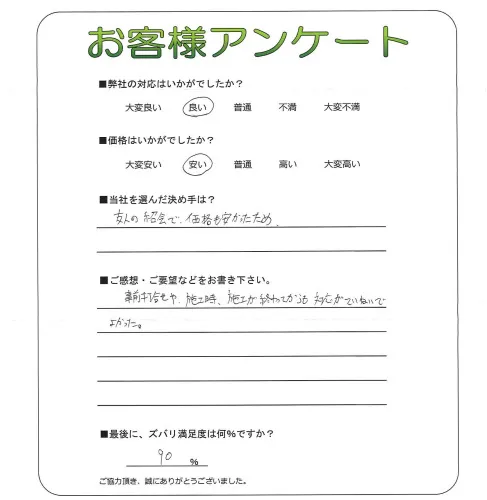 お客様アンケート
■弊社の対応はいかがでしたか？
大変良い 良い 普通 不満 大変不満
■価格はいかがでしたか？
大変安い 安い 普通 高い 大変高い
■当社を選んだ決め手は？
友人の紹介で、価格も安かったため。
■ご感想・ご要望などをお書き下さい。
事前打合せや、施工時、施工が終わってからも対応がていねいで
よかった。
■最後に、ズバリ満足度は何%ですか？
90 %
ご協力頂き、誠にありがとうございました。